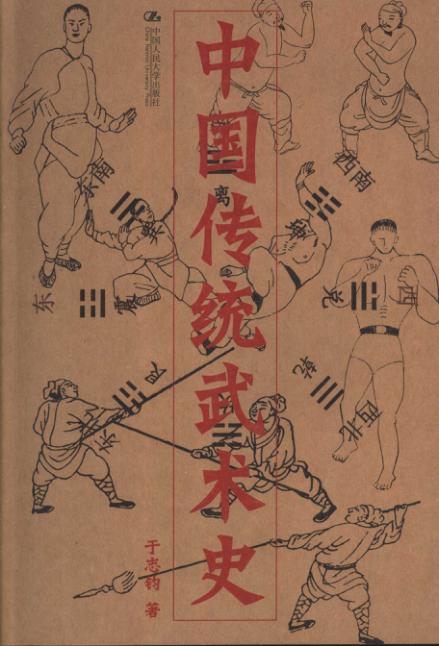 中国人民大学出版社
中国传统武术史
东南
西南
离
坤
东
震
兑
西
艮
乾
东
西北
于志钧 著